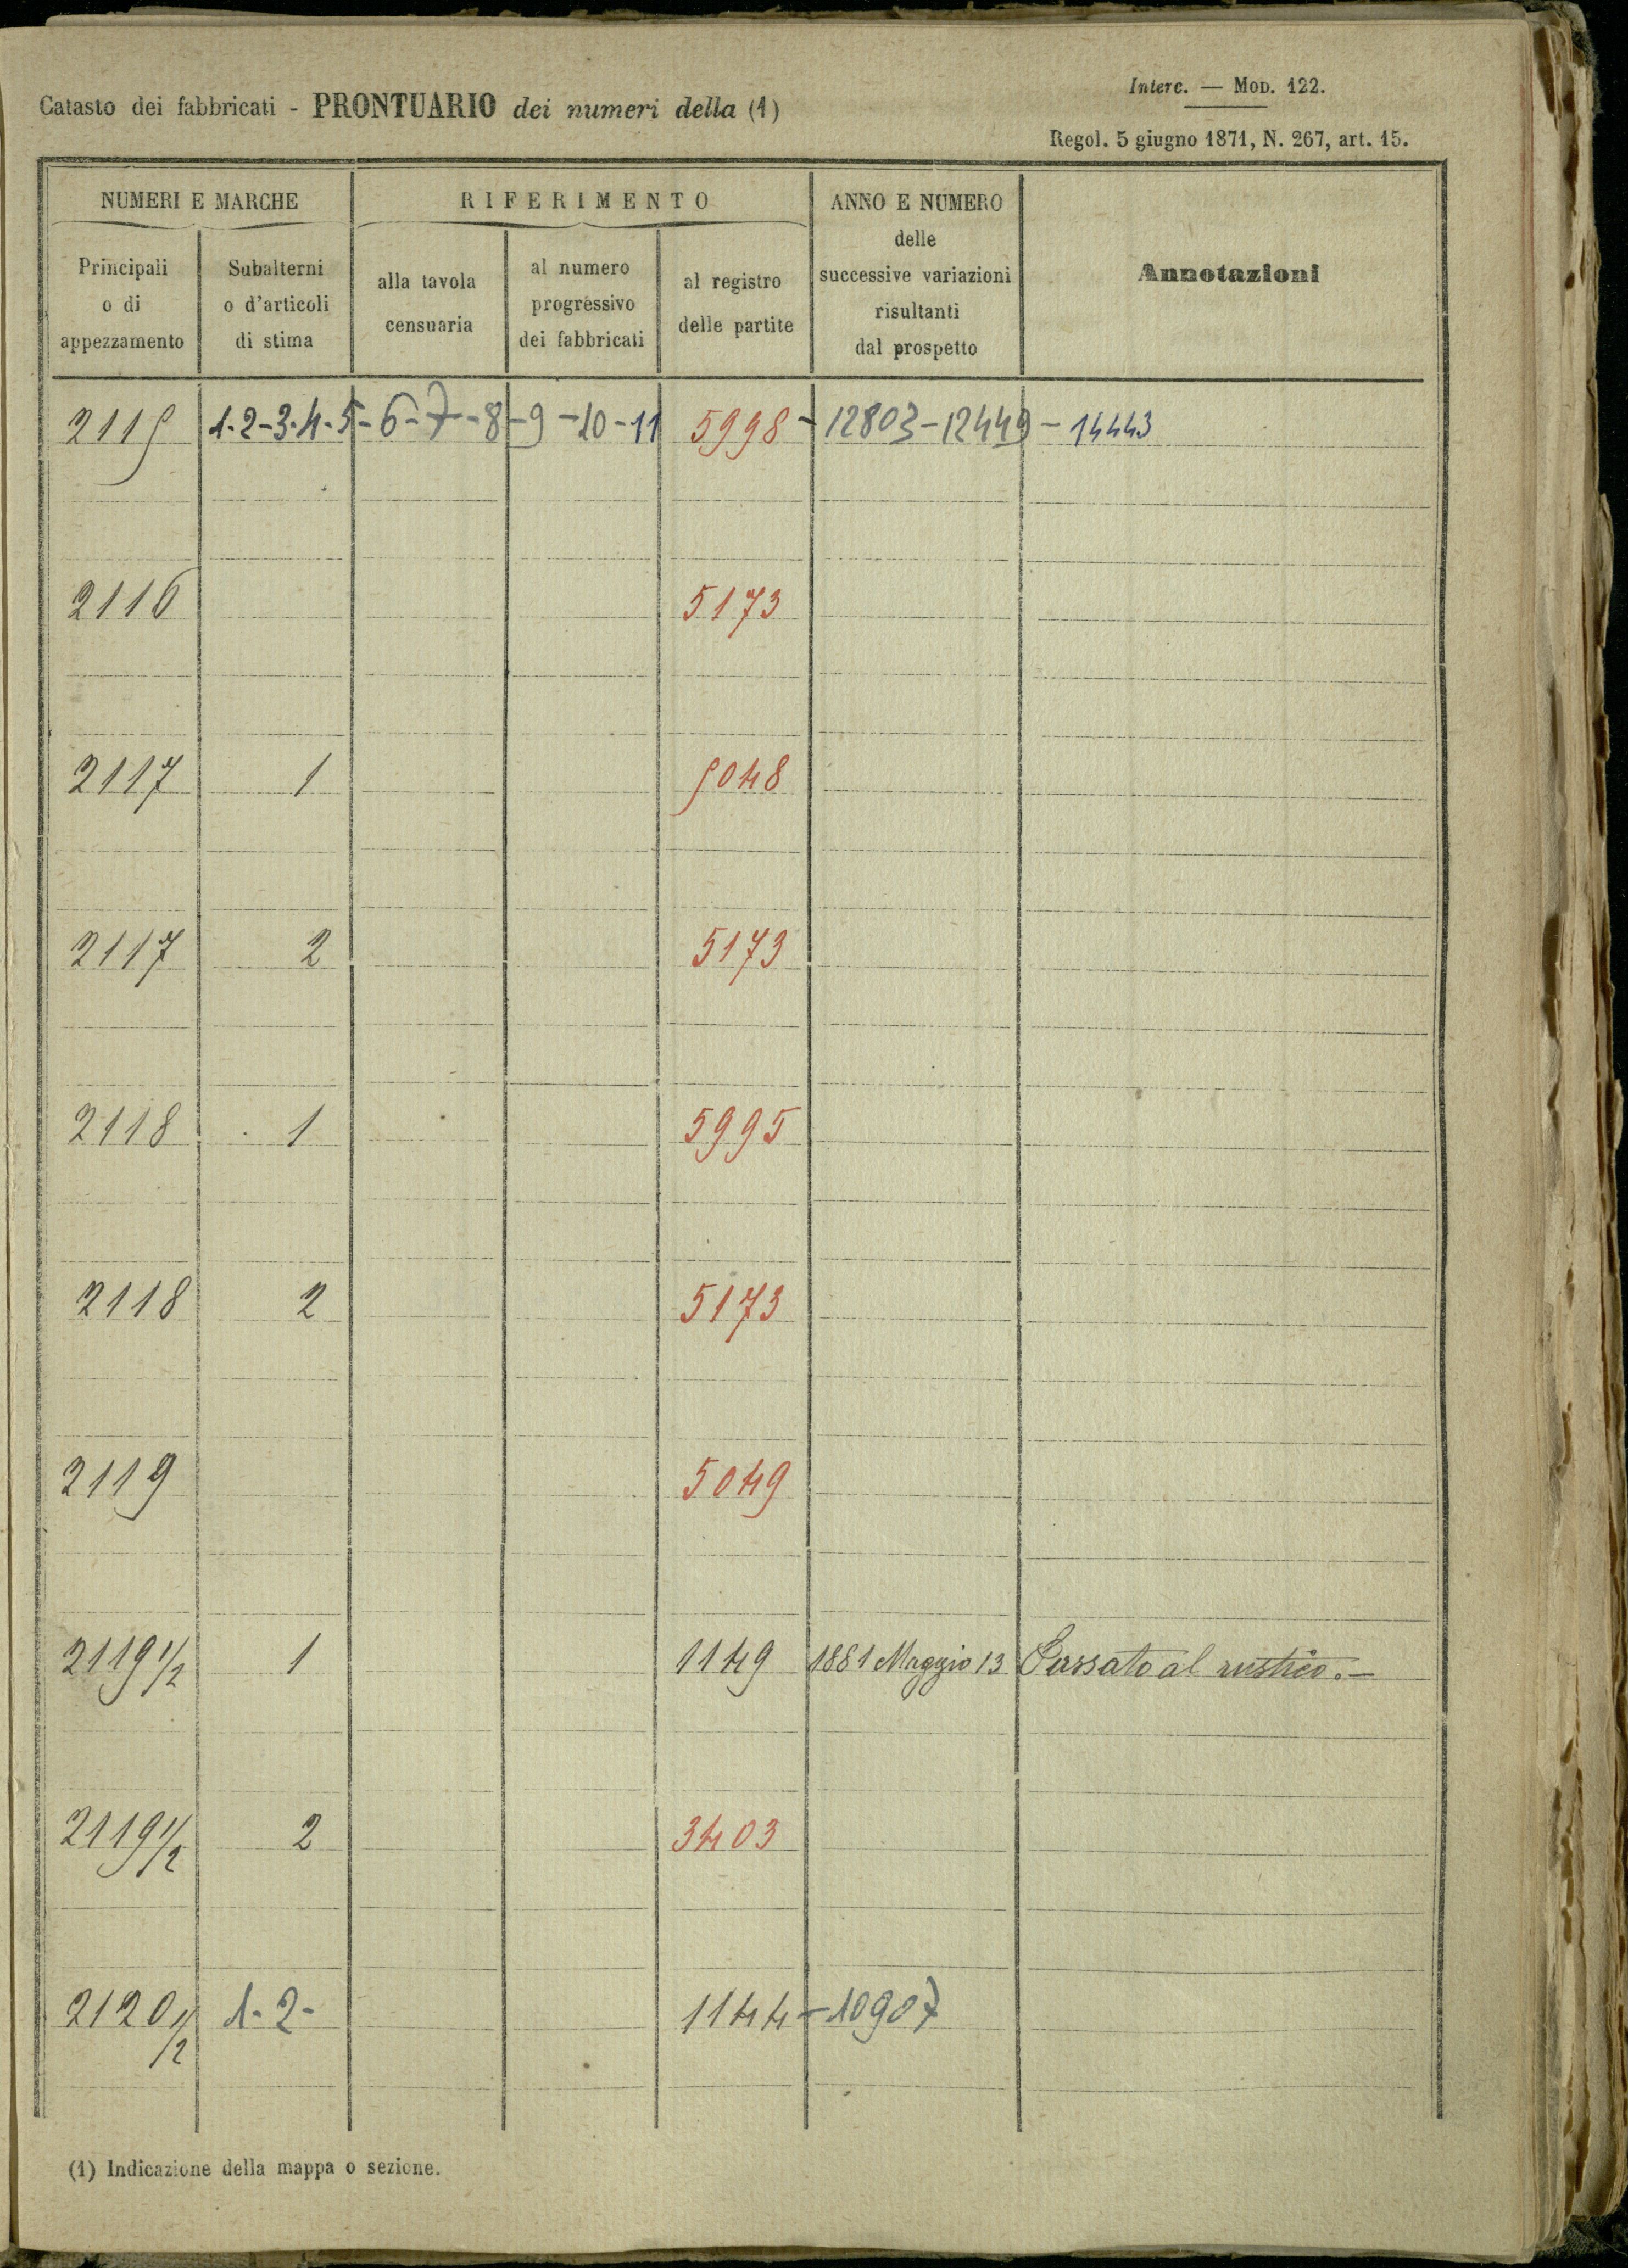 Catasto dei fabbricati - PRONTUARIO dei numeri della (1)
Interc. — MOD. 122.
Regol. 5 giugno 1871, N. 267, art. 15.
NUMERI E MARCHE
RIFERIMENTO
ANNO E NUMERO
delle
successive variazioni
risultanti
dal prospetto
Annotazioni
Principali
o di
appezzamento
Subalterni
o d'articoli
di stima
alla tavola
censuaria
al numero
progressivo
dei fabbricati
al registro
delle partite
2115 1-2-3-4-5-6-7-8-9-10-11 5998-12803-12449-14443
2116 5173
2117 1 5048
2117 2 5173
2118 1 5995
2118 2 5173
2119 5049
2119 1/2 1 1149 1881 Maggio 13 Passato al rustico.—
2119 1/2 2 3403
2120 1/2 1-2- 1144-10907
(1) Indicazione della mappa o sezione.